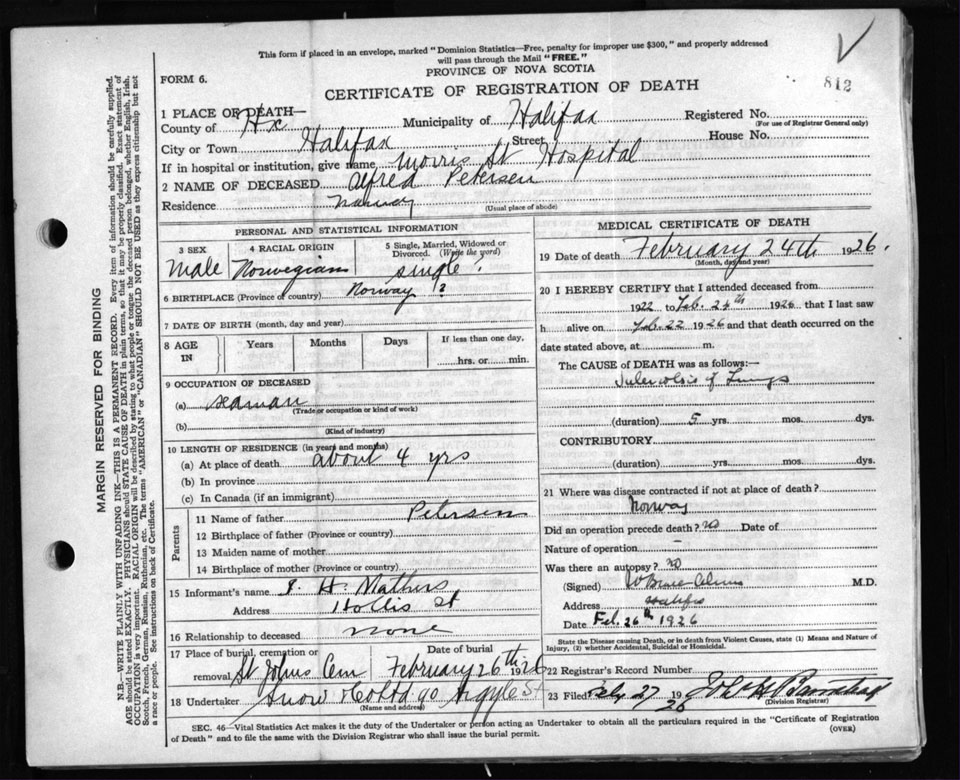 This form if placed in an envelope, marked "Dominion Statistics—Free, penalty for improper use $300," and properly addressed
will pass through the Mail "FREE."
PROVINCE OF NOVA SCOTIA
812
FORM 6.
CERTIFICATE OF REGISTRATION OF DEATH
1 PLACE OF DEATH—
County of Hx Municipality of Halifax Registered No.
(For use of Registrar General only)
City or Town Halifax Street House No.
If in hospital or institution, give name Morris St Hospital
2 NAME OF DECEASED Alfred Petersen
Residence Norway (Usual place of abode)
MARGIN RESERVED FOR BINDING
N.B.—WRITE PLAINLY WITH UNFADING INK—THIS IS A PERMANENT RECORD. Every item of information should be carefully supplied.
AGE should be stated EXACTLY. PHYSICIANS should STATE CAUSE OF DEATH in plain terms, so that it may be properly classified. Exact statement of
OCCUPATION is very important. RACIAL ORIGIN will be described by stating to what people or tongue the deceased person belonged, whether English, Irish,
Scotch, French, German, Russian, Ruthenian, etc. The terms "AMERICAN" or "CANADIAN" SHOULD NOT BE USED as they express citizenship but not
a race or people. See instructions on back of Certificate.
PERSONAL AND STATISTICAL INFORMATION
3 SEX Male
4 RACIAL ORIGIN Norwegian
5 Single, Married, Widowed or
Divorced. (Write the word)
single.
6 BIRTHPLACE (Province or country) Norway ?
7 DATE OF BIRTH (month, day and year)
8 AGE IN Years Months Days If less than one day,
hrs. or min.
9 OCCUPATION OF DECEASED
(a) seaman
(Trade or occupation or kind of work)
(b)
(Kind of industry)
10 LENGTH OF RESIDENCE (in years and months)
(a) At place of death about 4 yrs
(b) In province
(c) In Canada (if an immigrant)
Parents
11 Name of father Petersen
12 Birthplace of father (Province or country)
13 Maiden name of mother
14 Birthplace of mother (Province or country)
15 Informant's name J. H. Mathers
Address Hollis St
16 Relationship to deceased none
17 Place of burial, cremation or
removal St Johns Cem
Date of burial
February 26th 1926
18 Undertaker Snow 90 Argyle St
(Name and address)
MEDICAL CERTIFICATE OF DEATH
19 Date of death February 24th 1926.
(Month, day and year)
20 I HEREBY CERTIFY that I attended deceased from
1922 to Feb. 24th 1926 that I last saw
h alive on Feb. 22 1926 and that death occurred on the
date stated above, at m.
The CAUSE OF DEATH was as follows:—
Tuberculosis of Lungs
(duration) 5 yrs. mos. dys.
CONTRIBUTORY
(duration) yrs. mos. dys.
21 Where was disease contracted if not at place of death?
Norway
Did an operation precede death? no Date of
Nature of operation —
Was there an autopsy? no
(Signed) M.D.
Address Halifax
Date Feb. 26th 1926
State the Disease causing Death, or in death from Violent Causes, state (1) Means and Nature of
Injury, (2) whether Accidental, Suicidal or Homicidal.
22 Registrar's Record Number
23 Filed Feby 27 1926
(Division Registrar)
SEC. 46—Vital Statistics Act makes it the duty of the Undertaker or person acting as Undertaker to obtain all the particulars required in the "Certificate of Registration
of Death" and to file the same with the Division Registrar who shall issue the burial permit.
(OVER)